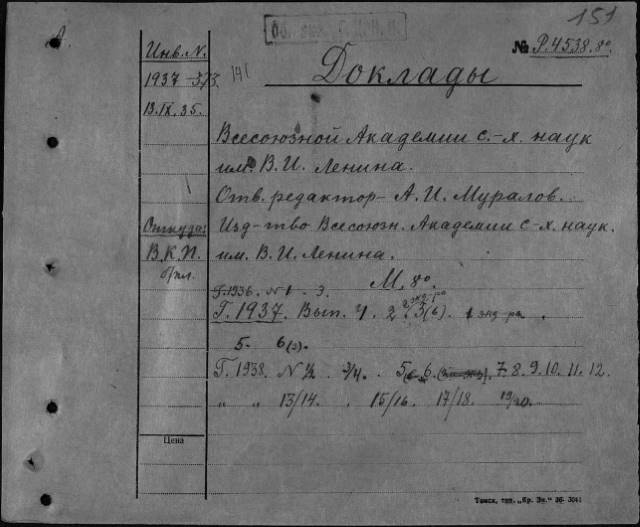 151
Инв. N.
№ P.4538.8º
1937-373
191
Доклады
13.IX.35.
Всесоюзной Академии с.-х. наук
им. В. И. Ленина.
Отв. редактор - А. И. Муралов.
Откуда: Изд-тво Всесоюзн. Академии с-х. наук.
В.К.П. им. В. И. Ленина.
М. 8º
Г.1936. N 1 - 3.
Г. 1937. Вып. 4. 2 3(6). 1 экз-ра.
5. 6(3).
Г. 1938. N 1/2. 3/4. 5 6. 7. 8. 9. 10. 11. 12.
„ „ 13/14. 15/16. 17/18. 19/20.
Цена
Томск, тип. „Кр. Зн." 36-3041